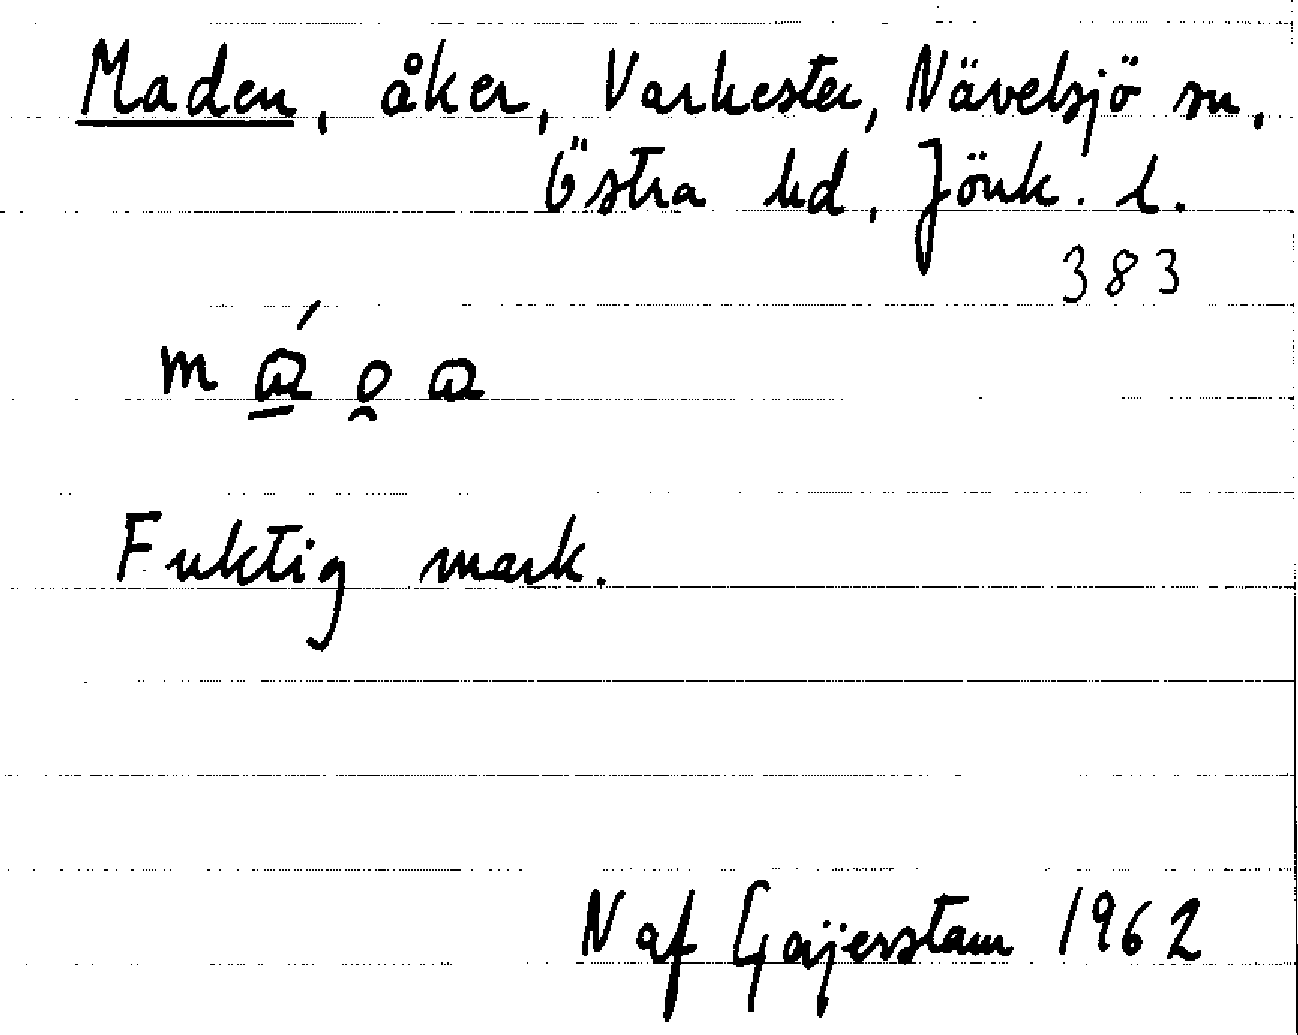 Maden, åker, Varkester, Nävelsjö sn,
Östra hd, Jönk. l.
383
Fuktig mark.
N af Geijerstam 1962